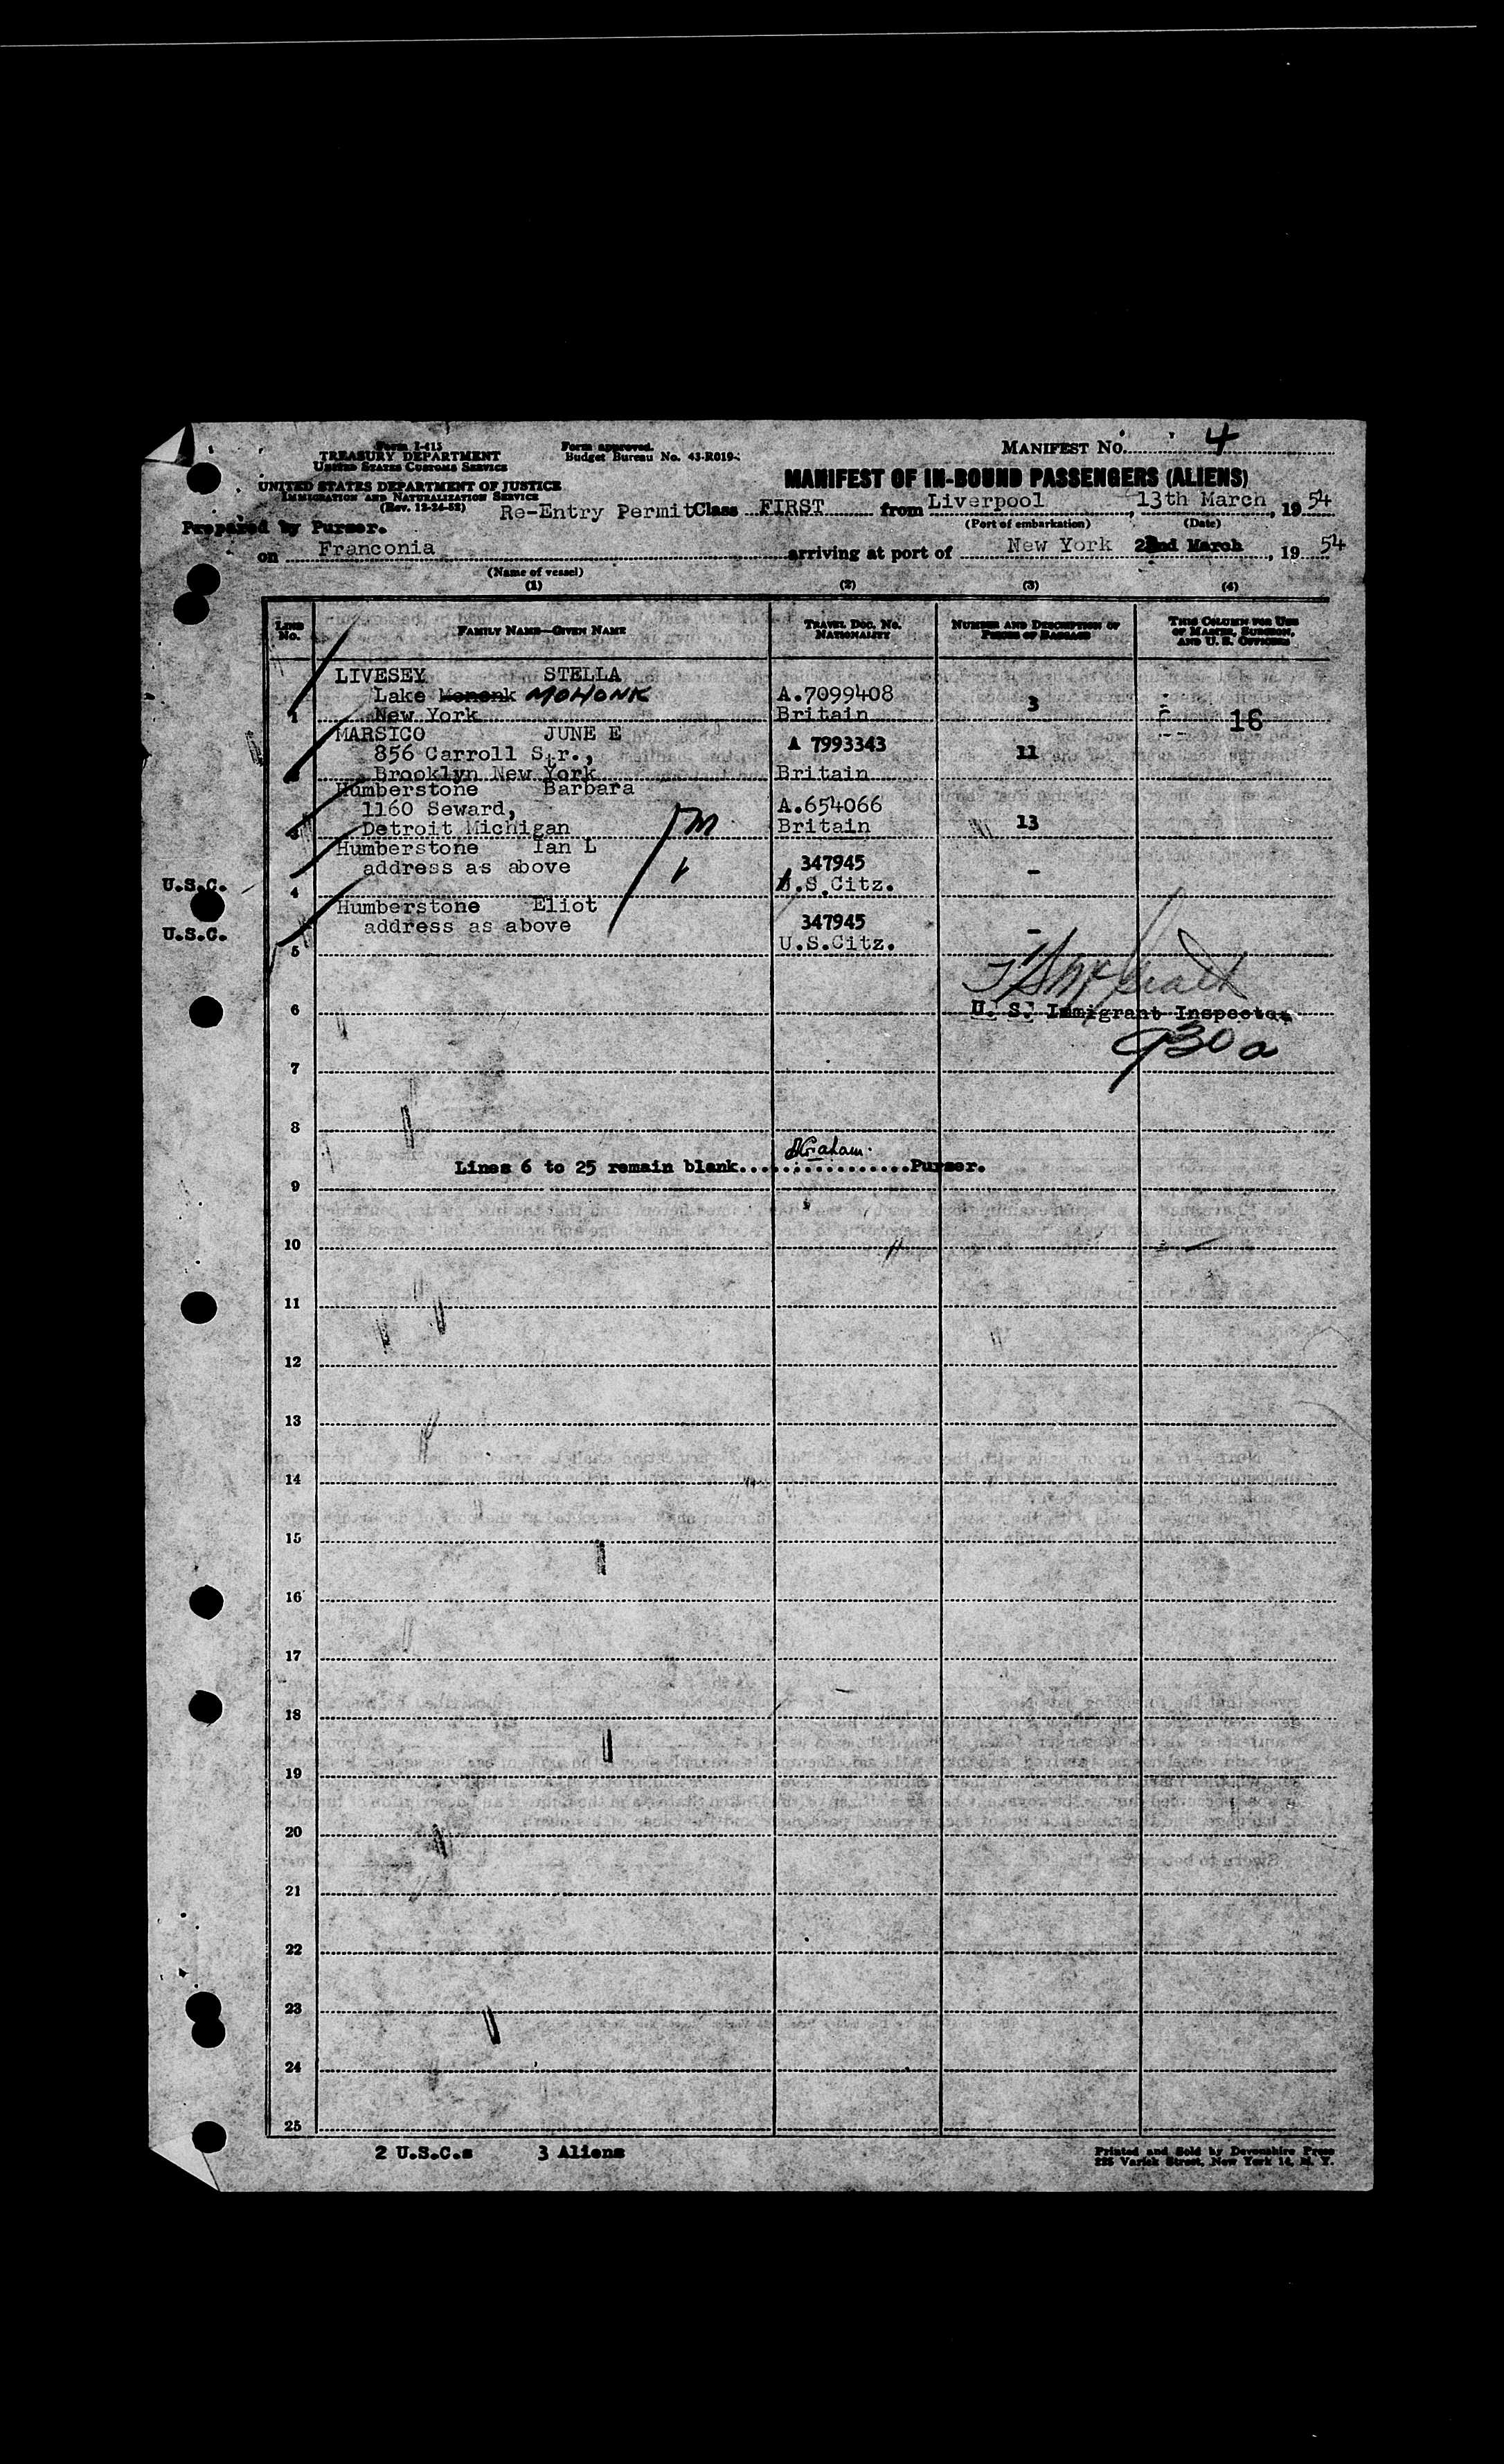 Form I-415
TREASURY DEPARTMENT
UNITED STATES CUSTOMS SERVICE
UNITED STATES DEPARTMENT OF JUSTICE
IMMIGRATION AND NATURALIZATION SERVICE
(Rev. 12-24-52)
Form approved.
Budget Bureau No. 43-R019-
MANIFEST NO. 4
MANIFEST OF IN-BOUND PASSENGERS (ALIENS)
Prepared by Purser.
Re-Entry Permit Class FIRST from Liverpool, 13th March, 1954
(Port of embarkation) (Date)
on Franconia arriving at port of New York 22nd March, 1954
(Name of vessel)
(1) (2) (3) (4)
LINE No. FAMILY NAME—GIVEN NAME TRAVEL DOC. NO. NATIONALITY NUMBER AND DESCRIPTION OF PIECES OF BAGGAGE THIS COLUMN FOR USE OF MASTER, SURGEON, AND U. S. OFFICERS
LIVESEY STELLA
Lake Mononk MOHONK A.7099408 3
1 New York Britain 16
MARSICO JUNE E
856 Carroll Str., A 7993343 11
2 Brooklyn New York Britain
Humberstone Barbara
1160 Seward, A.654066
3 Detroit Michigan m Britain 13
Humberstone Ian L
address as above 347945
U.S.C. 4 U.S.Citz. -
Humberstone Eliot
U.S.C. address as above 347945 -
5 U.S.Citz.
6 U. S. Immigrant Inspector
930 a
7
8
Lines 6 to 25 remain blank................Purser.
Graham.
9
10
11
12
13
14
15
16
17
18
19
20
21
22
23
24
25
2 U.S.C.s 3 Aliens
Printed and Sold by Devonshire Press
225 Varick Street, New York 14, N. Y.